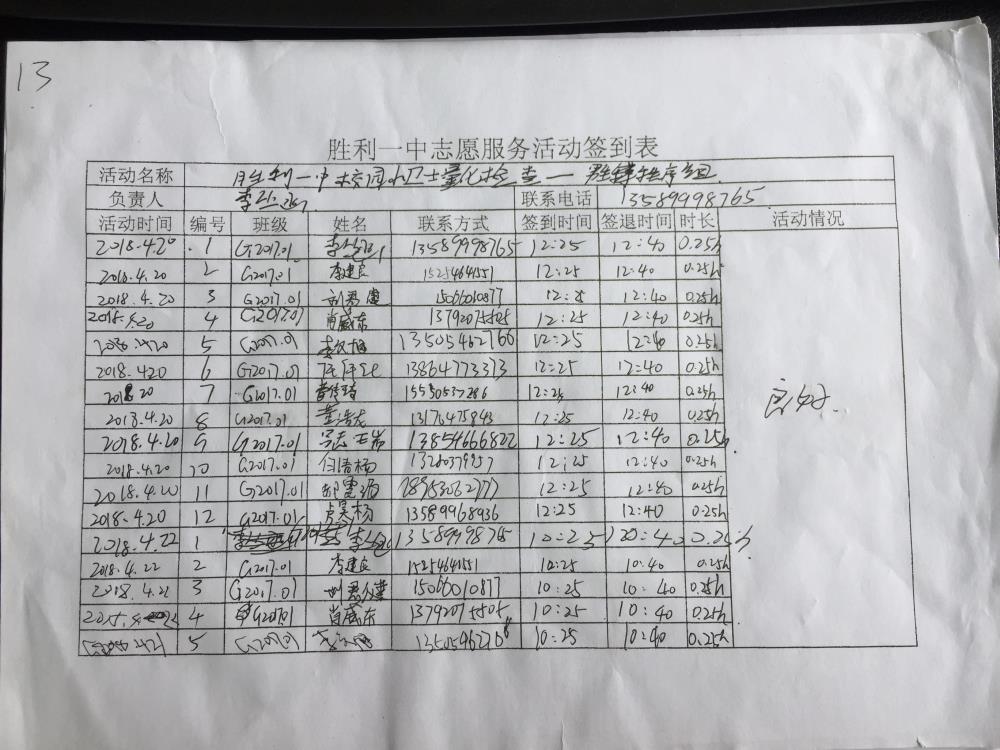 13
胜利一中志愿服务活动签到表
活动名称 胜利一中校园小卫士量化检查一 秩序组
负责人 李 联系电话 13589998765
活动时间 编号 班级 姓名 联系方式 签到时间 签退时间 时长 活动情况
2018.4.20 1 G2017.01 李 13589998765 12:25 12:40 0.25h
2018.4.20 2 G2017.01 李建良 15254641551 12:25 12:40 0.25h
2018.4.20 3 G2017.01 刘君健 15066010877 12:25 12:40 0.25h
2018.4.20 4 G2017.01 肖威东 13792075505 12:25 12:40 0.25h
5 G2017.01 13505462766 12:25 12:40 0.25h
2018.420 6 G2017.01 13864773373 12:25 12:40 0.25h
7 G2017.01 12:25 12:40 0.25h
2018.4.20 8 G2017.01 董浩龙 13176475843 12:25 12:40 0.25h
2018.4.20 9 G2017.01 13854666822 12:25 12:40 0.25h
2018.4.20 10 G2017.01 任浩杨 12:25 12:40 0.25h
2018.4.20 11 G2017.01 12:25 12:40 0.25h
2018.4.20 12 G2017.01 卢昊杨 13589968936 12:25 12:40 0.25h
2018.4.22 1 李 13589998765 10:25 10:40 0.25h
2018.4.22 2 G2017.01 李建良 15254641551 10:25 10:40 0.25h
2018.4.22 3 G2017.01 刘君健 15066010877 10:25 10:40 0.25h
4 G2017.01 肖威东 13792075505 10:25 10:40 0.25h
5 G2017.01 10:25 10:40 0.25h
良好.